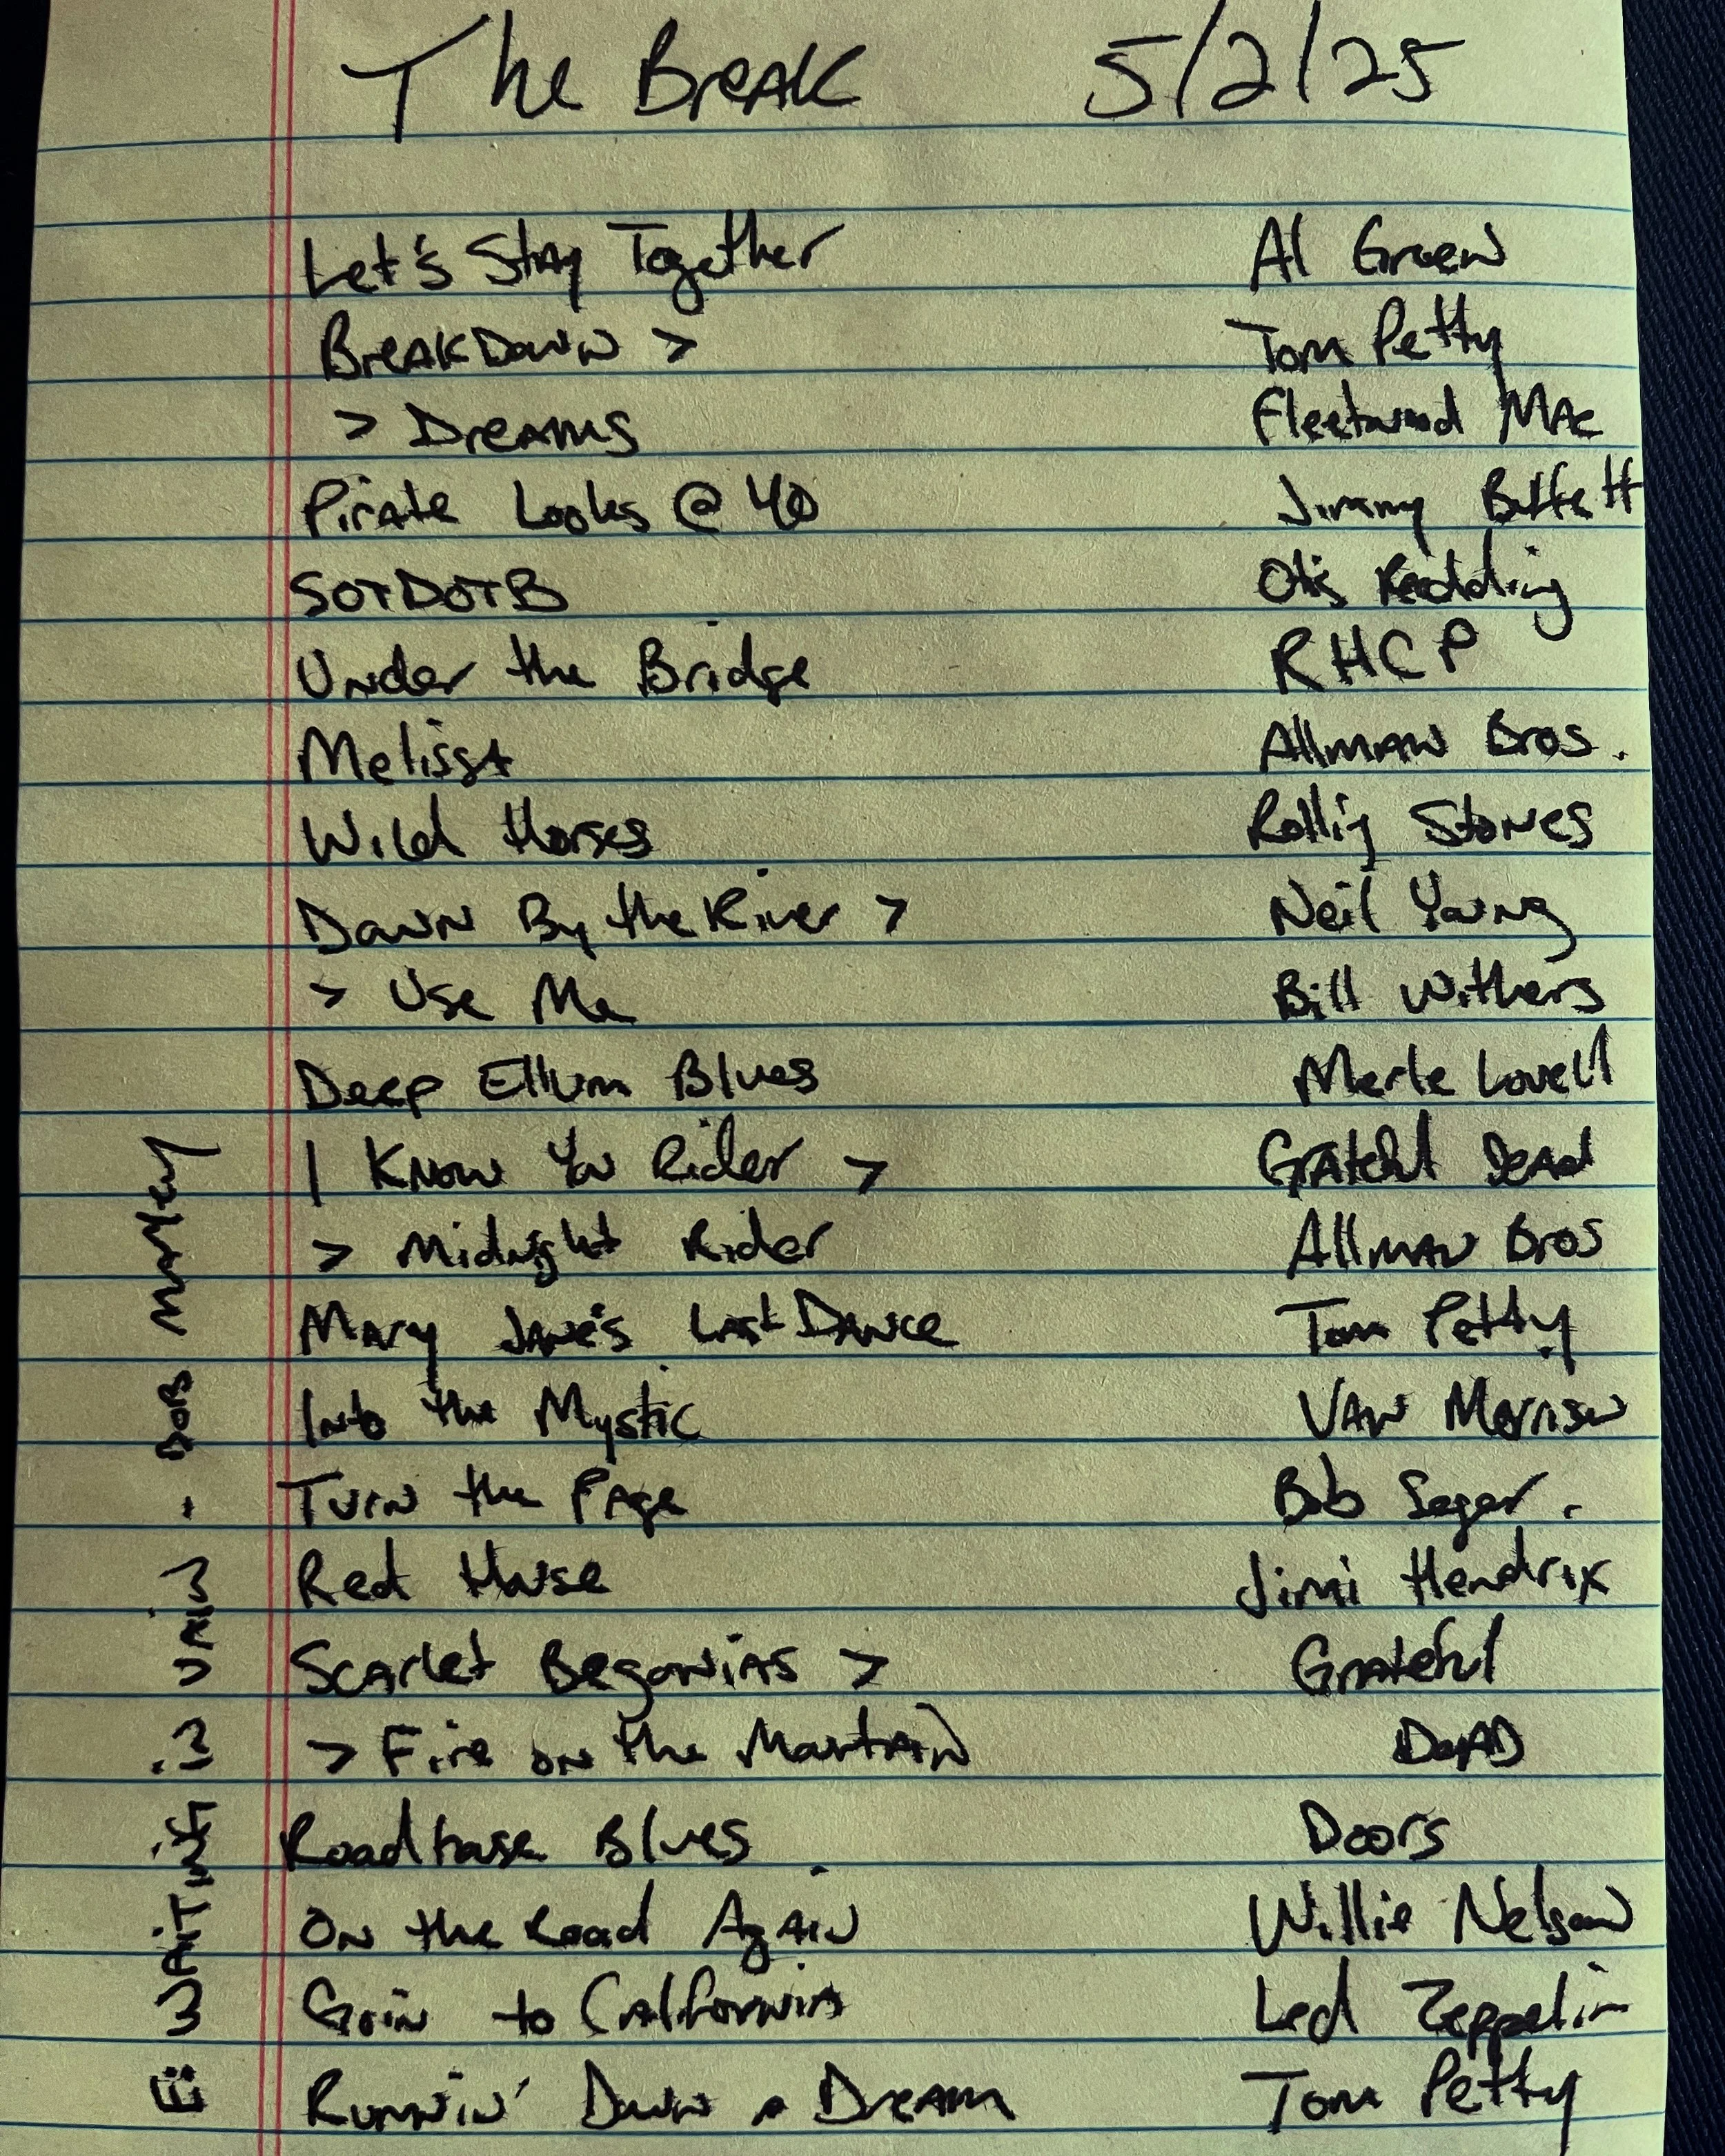 The Break 5/2/25
Let's Stay Together Al Green
BreakDown > Tom Petty
> Dreams Fleetwood Mac
Pirate Looks @ 40 Jimmy Buffett
SOTDOTB Otis Redding
Under the Bridge RHCP
Melissa Allman Bros.
Wild Horses Rolling Stones
Down By the River > Neil Young
> Use Me Bill Withers
Deep Ellum Blues Merle Lovell
I Know You Rider > Grateful Dead
> Midnight Rider Allman Bros
Mary Jane's Last Dance Tom Petty
Into the Mystic Van Morrison
Turn the Page Bob Seger.
Red House Jimi Hendrix
Scarlet Begonias > Grateful
> Fire on the Mountain Dead
Roadhouse Blues Doors
On the Road Again Willie Nelson
Goin to California Led Zeppelin
Runnin' Down a Dream Tom Petty
E: Waiting in Vain - Bob Marley